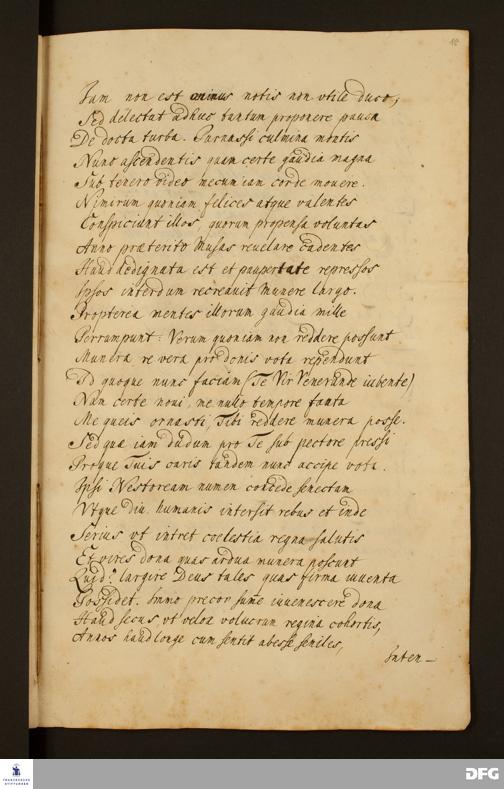 10
Jam non est animus notis non vtile duco,
Sed delectat adhuc tantum proponere pauca
De docta turba. Parnassi culmina montis
Nunc ascendentis quam certe gaudia magna
Sub tenero video mecum iam corde mouere.
Nimirum quoniam felices atque valentes
Conspiciunt illos, quorum propensa voluntas
Anno præterito Musas reuelare cadentes
Haud dedignata est et paupertate repressos
Ipsos interdum recreauit munere largo.
Propterea mentes illorum gaudia mille
Perrumpunt: Verum quoniam non reddere possunt
Munera re vera pro donis vota rependunt
Id quoque nunc faciam (Te Vir Venerande iubente)
Nam certe noui, me nullo tempore tanta
Me queis ornasti, Tibi reddere munera posse.
Sed quæ iam dudum pro Te sub pectore pressi
Proque Tuis caris tandem nunc accipe vota.
Ipsi Nestoream numen concede senectam
Vtque diu humanis intersit rebus et inde
Serius vt intret coelestia regna salutis
Et vires dona quas ardua munera poscunt
Quid? largire Deus tales quas firma iuuenta
Possidet. Immo precor sume iuuenescere dona
Haud secus vt velox volucrum regina cohortis,
Annos haud longe cum sentit abesse seniles,
Inten-
FRANCKESCHE STIFTUNGEN
DFG